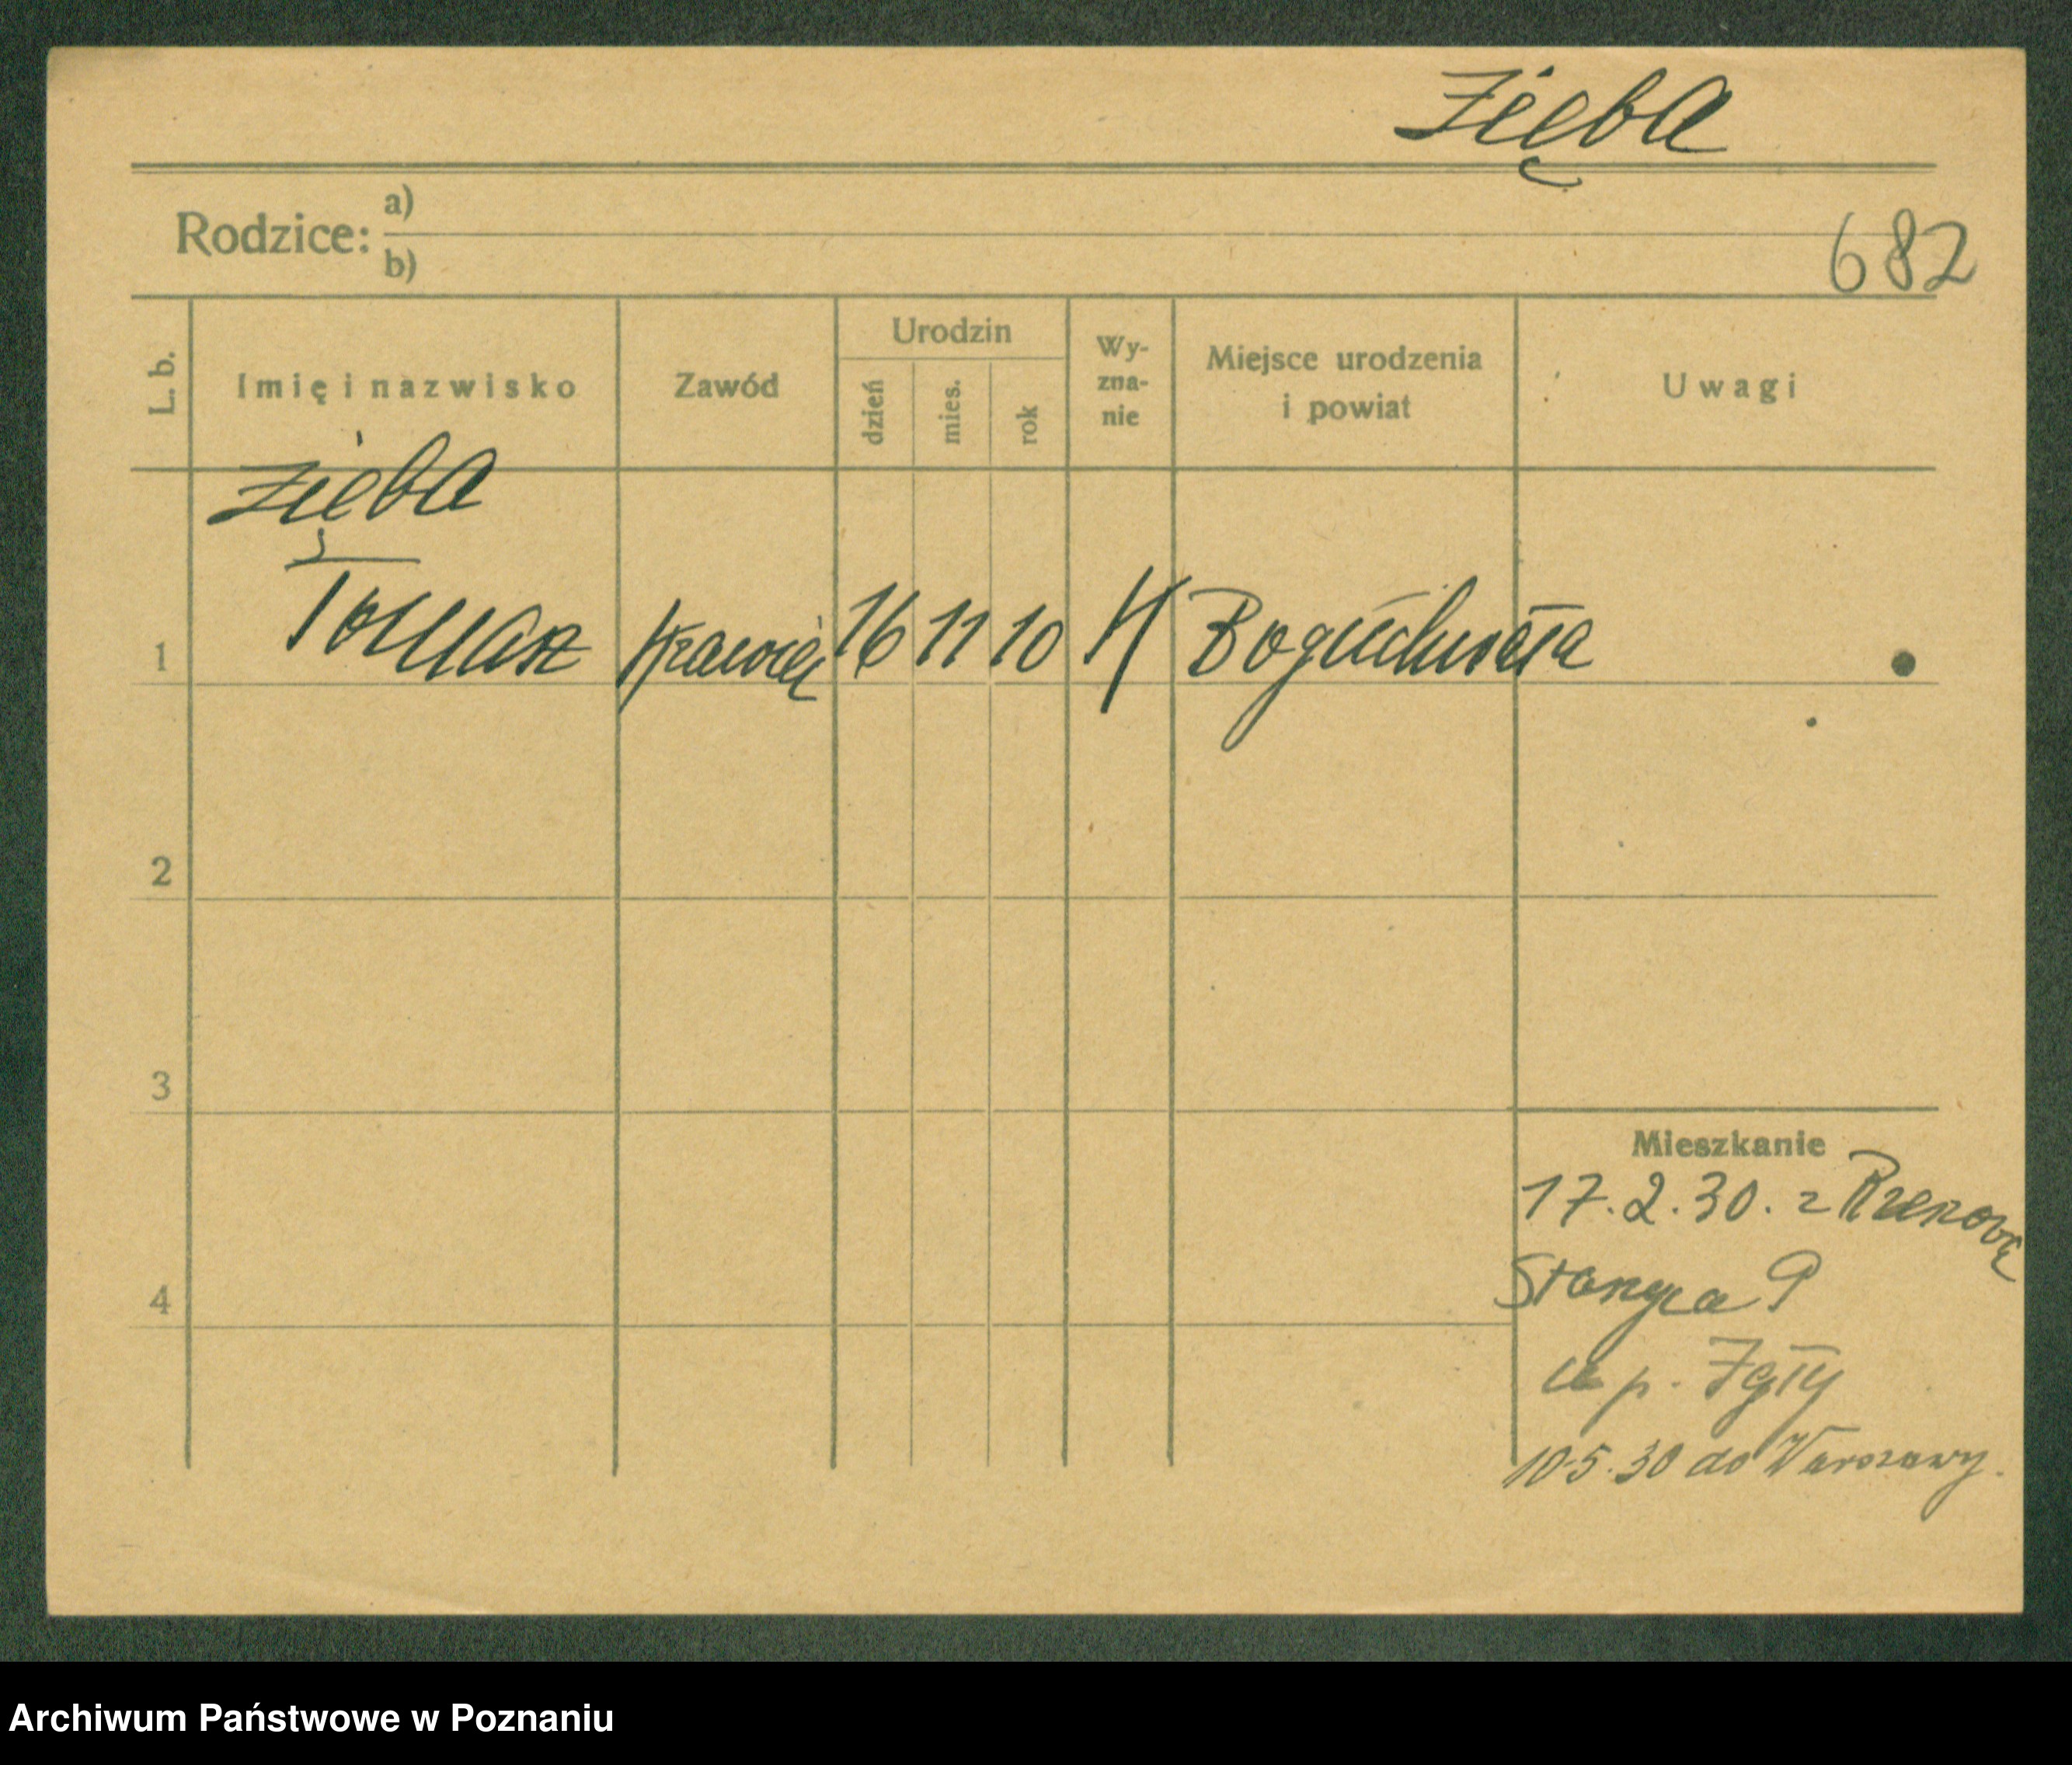 Zięba
Rodzice:
a)
b)
682
L. b.
Imię i nazwisko
Zawód
Urodzin
dzień
mies.
rok
Wy-
zna-
nie
Miejsce urodzenia
i powiat
Uwagi
Zięba
1 Tomasz krawiec 16 11 10 K
2
3
4
Mieszkanie
17.2.30. z
9
u p.
10.5.30 do Warszawy.
Archiwum Państwowe w Poznaniu